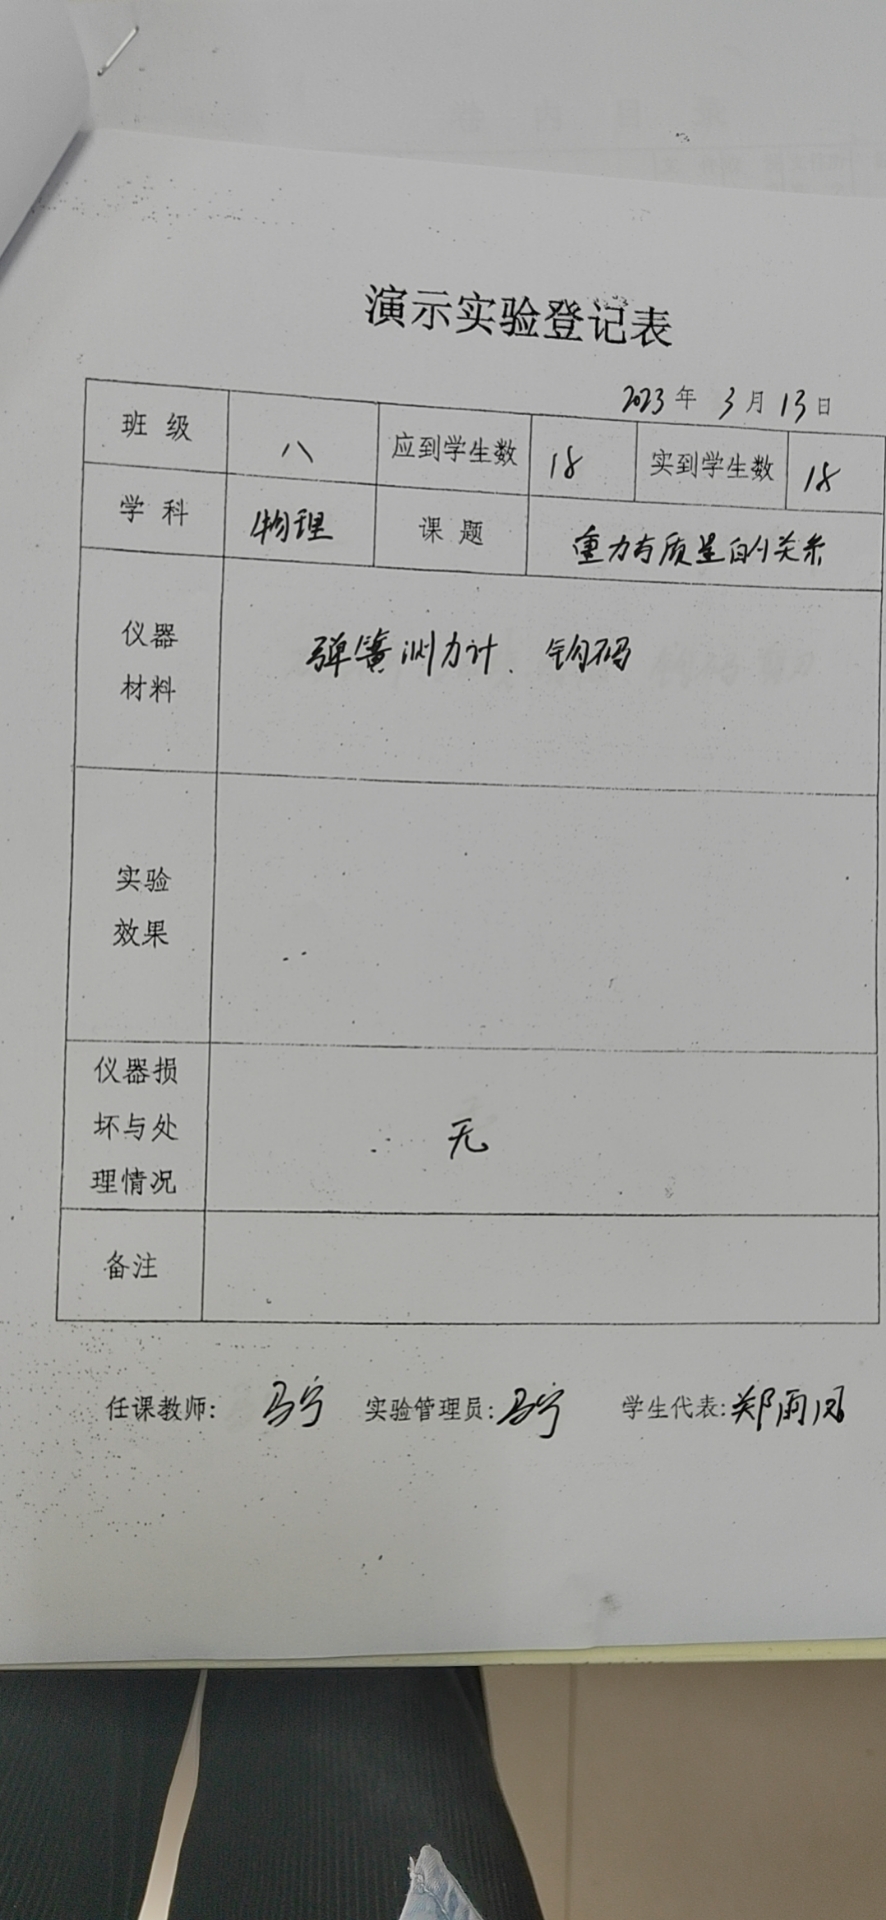 演示实验登记表
2023年 3月13日
班级 八 应到学生数 18 实到学生数 18
学科 物理 课题 重力与质量的关系
仪器
材料
弹簧测力计、钩码
实验
效果
仪器损
坏与处
理情况
无
备注
任课教师: 马宁 实验管理员: 马宁 学生代表: 郑雨